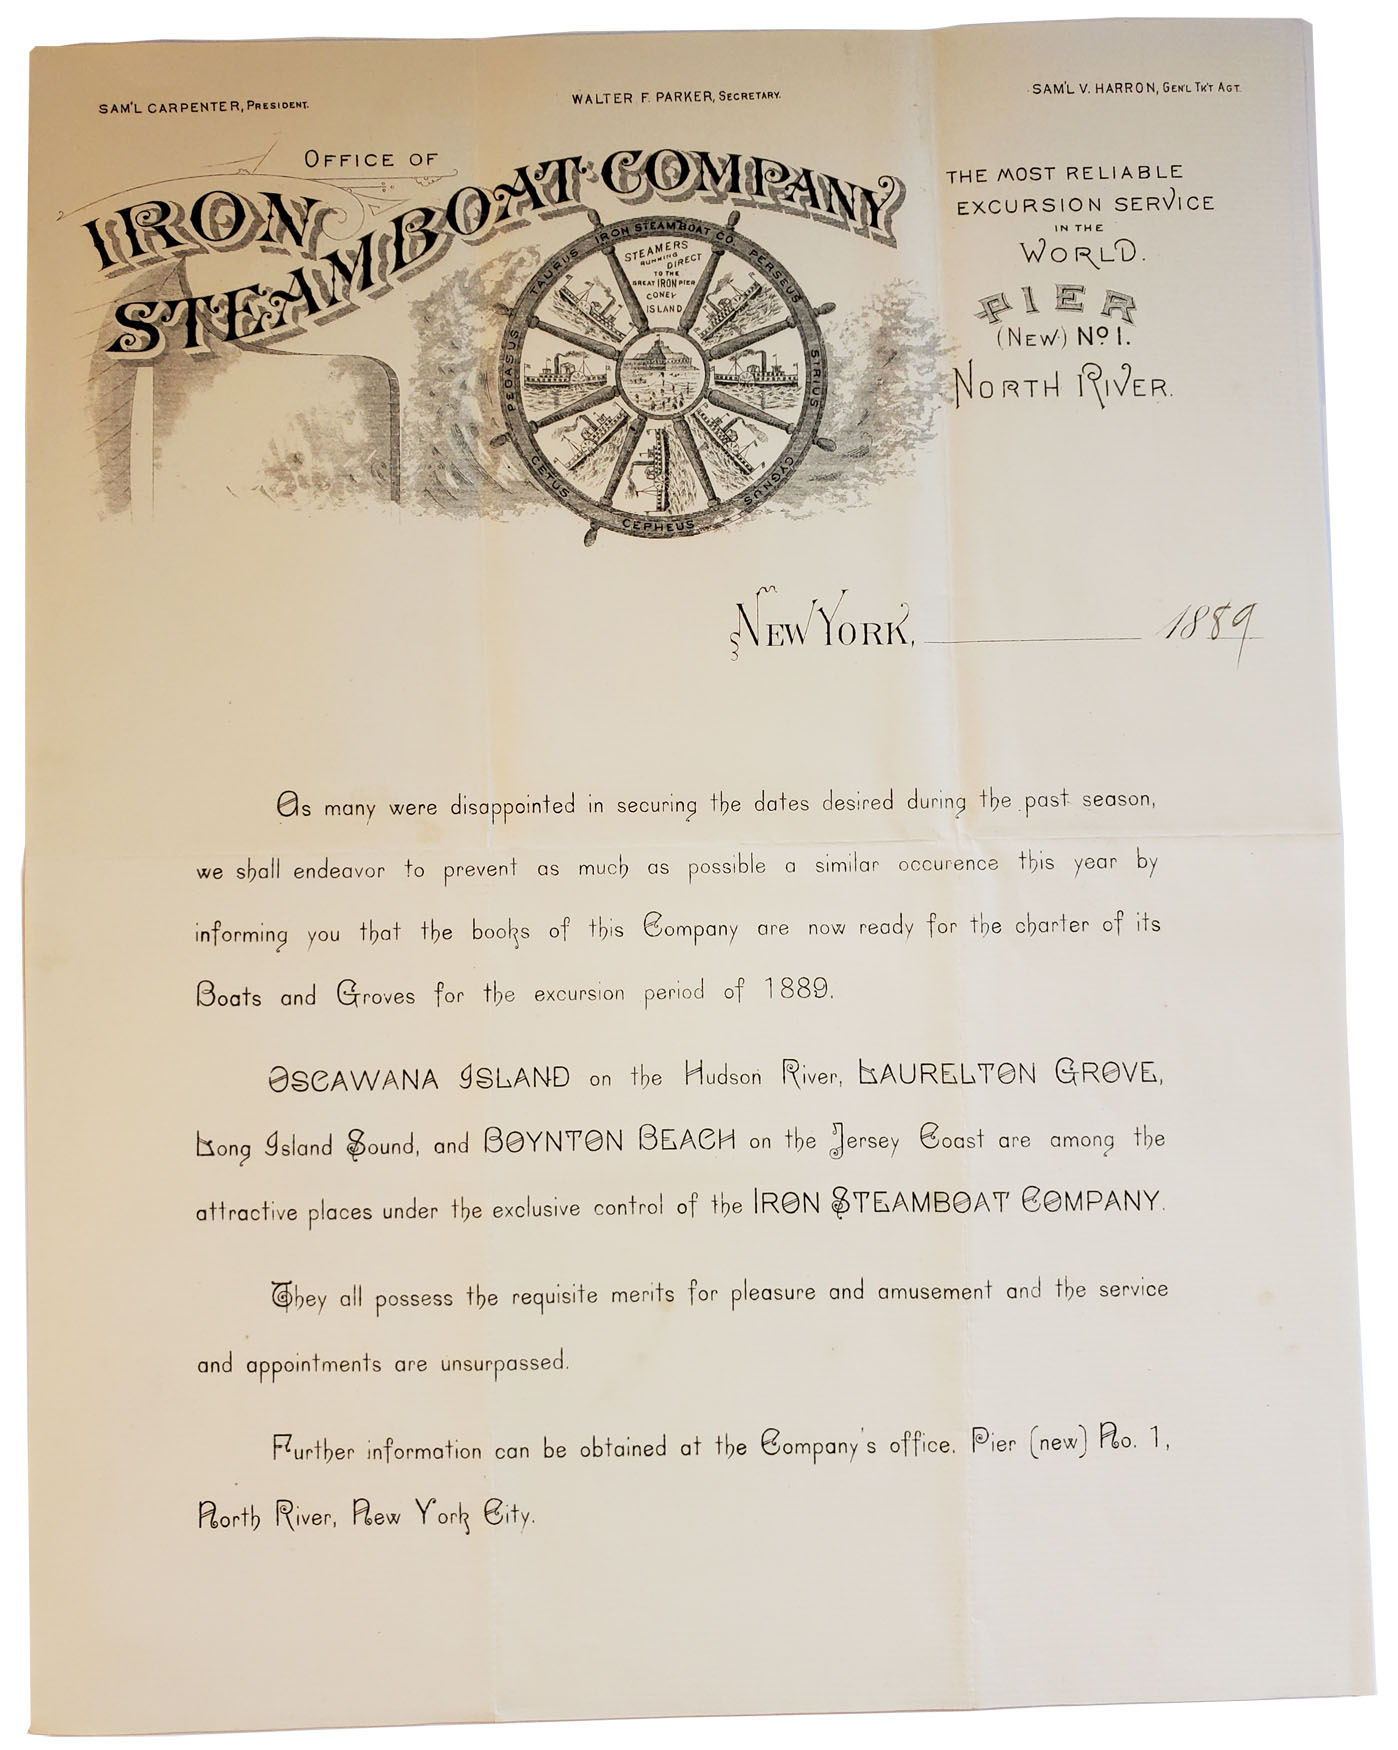 SAM'L CARPENTER, PRESIDENT.
WALTER F. PARKER, SECRETARY.
SAM'L V. HARRON, GEN'L TK'T AGT.
OFFICE OF
IRON
STEAMBOAT COMPANY
THE MOST RELIABLE
EXCURSION SERVICE
IN THE
WORLD.
PIER
(NEW) No 1.
NORTH RIVER.
IRON STEAMBOAT CO.
PERSEUS
SIRIUS
CYGNUS
CEPHEUS
CETUS
PEGASUS
TAURUS
STEAMERS
RUNNING
DIRECT
TO THE
GREAT IRON PIER
CONEY
ISLAND
NEW YORK, 1889
As many were disappointed in securing the dates desired during the past season,
we shall endeavor to prevent as much as possible a similar occurence this year by
informing you that the books of this Company are now ready for the charter of its
Boats and Groves for the excursion period of 1889.
OSCAWANA ISLAND on the Hudson River, LAURELTON GROVE,
Long Island Sound, and BOYNTON BEACH on the Jersey Coast are among the
attractive places under the exclusive control of the IRON STEAMBOAT COMPANY.
They all possess the requisite merits for pleasure and amusement and the service
and appointments are unsurpassed.
Further information can be obtained at the Company's office. Pier (new) No. 1,
North River, New York City.